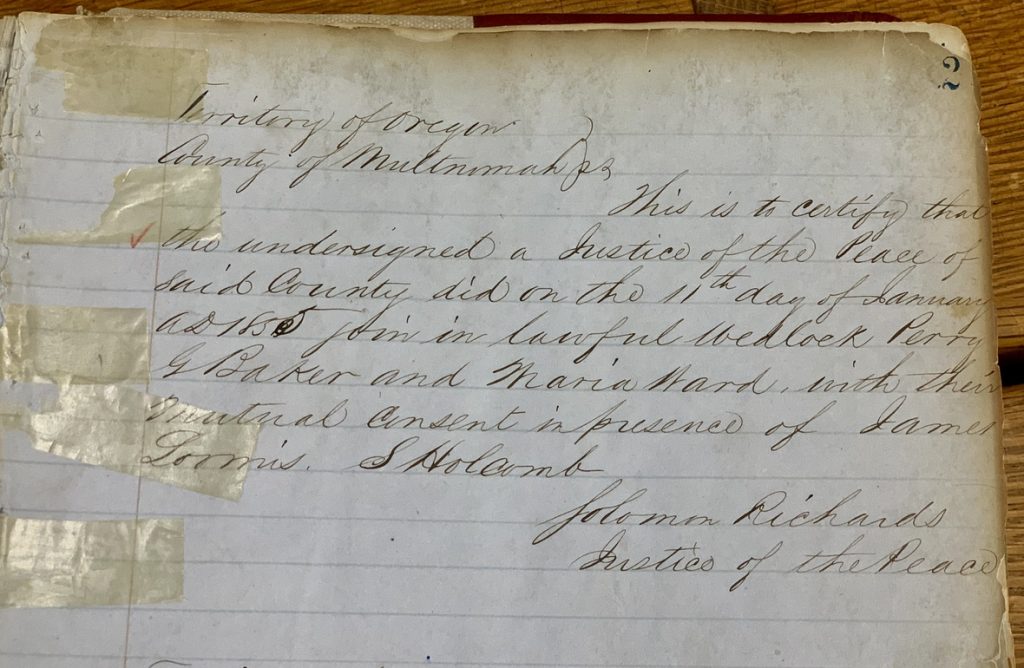 2
Territory of Oregon
County of Multnomah } ss
This is to certify that
the undersigned a Justice of the Peace of
said County did on the 11th day of January
AD 1855 join in lawful Wedlock Perry
G Baker and Maria Ward, with their
mutual consent in presence of James
Loomis. S Holcomb
Solomon Richards
Justice of the Peace